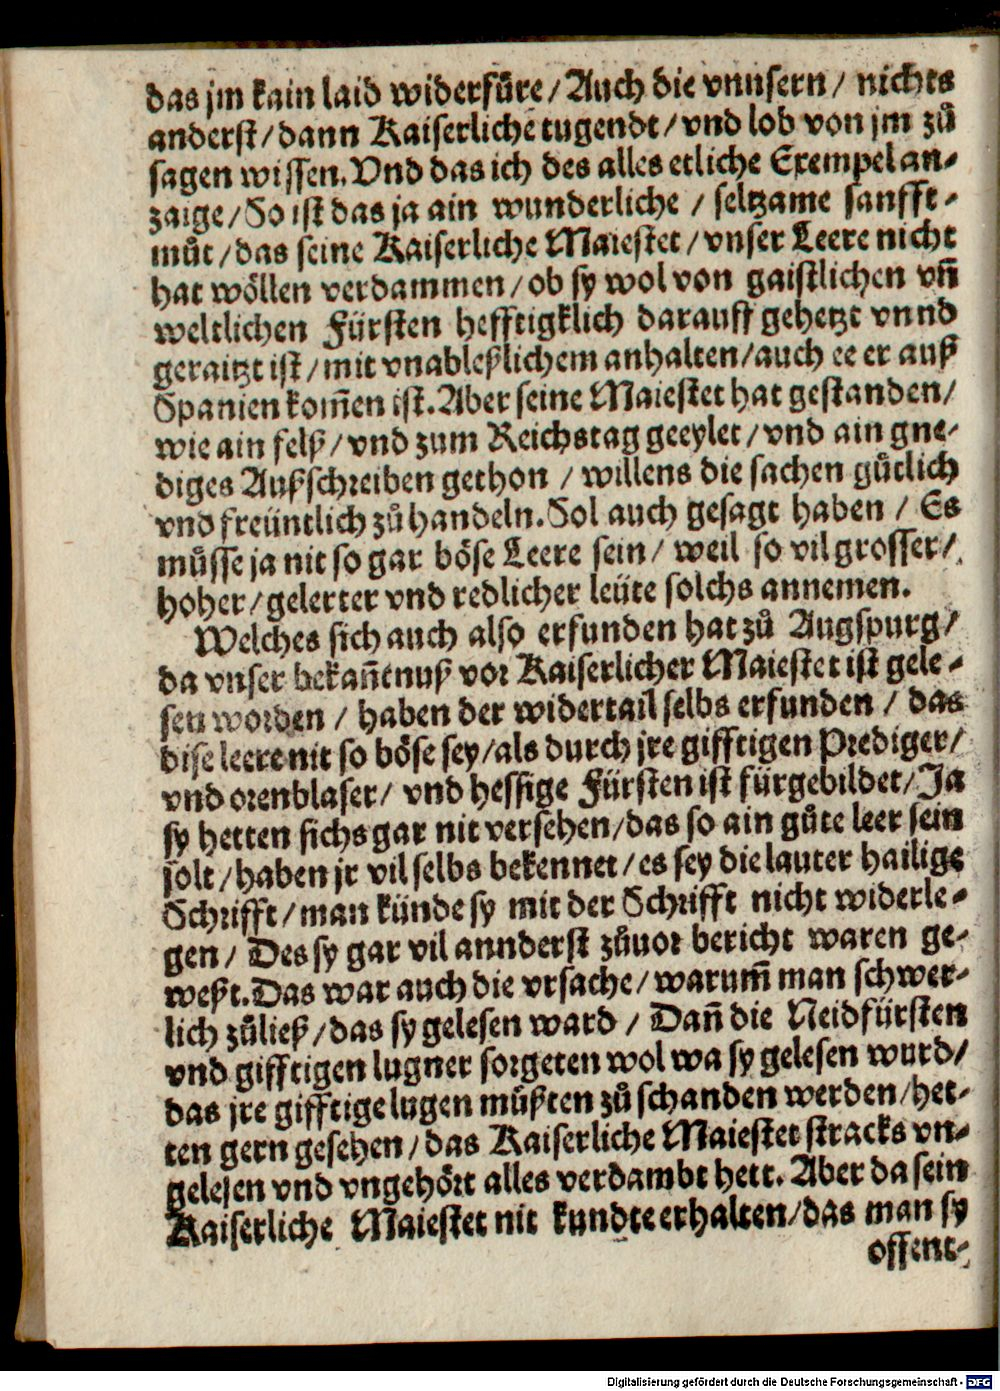 das jm kain laid widerfůre / Auch die vnnsern / nichts
anderst / dann Kaiserliche tugendt / vnd lob von jm zů
sagen wissen. Vnd das ich des alles etliche Exempel an-
zaige / So ist das ja ain wunderliche / seltzame sanfft-
můt / das seine Kaiserliche Maiestet / vnser Leere nicht
hat wöllen verdammen / ob sy wol von gaistlichen vñ
weltlichen Fürsten hefftigklich darauff gehetzt vnnd
geraitzt ist / mit vnableßlichem anhalten / auch ee er auß
Spanien kom̃en ist. Aber seine Maiestet hat gestanden /
wie ain felß / vnd zum Reichstag geeylet / vnd ain gne-
diges Außschreiben gethon / willens die sachen gůtlich
vnd freüntlich zů handeln. Sol auch gesagt haben / Es
můsse ja nit so gar böse Leere sein / weil so vil grosser /
hoher / gelerter vnd redlicher leüte solchs annemen.
Welches sich auch also erfunden hat zů Augspurg /
da vnser bekañtnuß vor Kaiserlicher Maiestet ist gele-
sen worden / haben der widertail selbs erfunden / das
dise leere nit so böse sey / als durch jre gifftigen Prediger /
vnd orenblaser / vnd hessige Fürsten ist fürgebildet / Ja
sy hetten sichs gar nit versehen / das so ain gůte leer sein
solt / haben jr vil selbs bekennet / es sey die lauter hailige
Schrifft / man künde sy mit der Schrifft nicht widerle-
gen / Des sy gar vil annderst zůuor bericht waren ge-
weßt. Das war auch die vrsache / warum̃ man schwer-
lich zůließ / das sy gelesen ward / Dañ die Neidfürsten
vnd gifftigen lugner sorgeten wol wa sy gelesen wurd /
das jre gifftige lugen můßten zů schanden werden / het-
ten gern gesehen / das Kaiserliche Maiestet stracks vn-
gelesen vnd vngehört alles verdambt hett. Aber da sein
Kaiserliche Maiestet nit kundte erhalten / das man sy
offent-
Digitalisierung gefördert durch die Deutsche Forschungsgemeinschaft - DFG